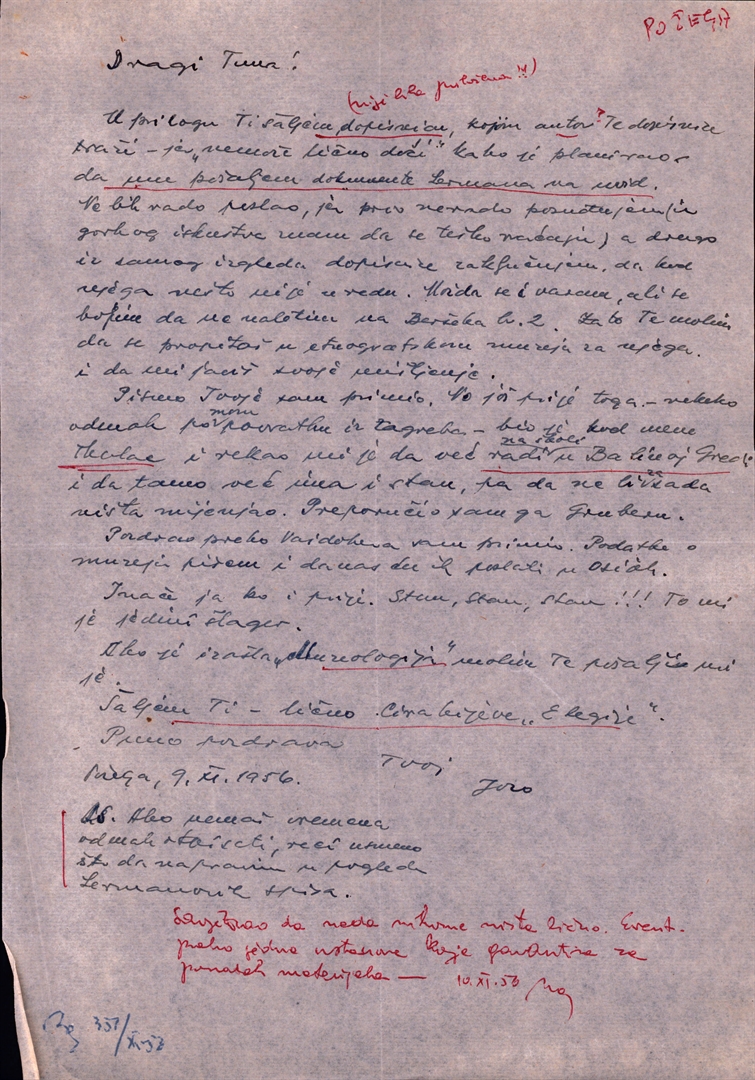 Dragi Tuna!
(nije bila priložena!!)
U prilogu Ti šaljem dopisnicu, kojom autor Te dopisnice
traži – jer „nemože lično doći" kako je planirao –
da mu pošaljem dokumente Lermana na uvid.
Ne bih rado poslao, jer prvo nerado posuđujem (iz
gorkog iskustva znam da se teško vraćaju) a drugo
iz samog izgleda dopisnice zaključujem, da kod
njega nešto nije u redu. Možda se i varam, ali se
bojim da ne naletim na br. 2. Zato Te molim
da se propitaš u etnografskom muzeju za njega.
i da mi javiš svoje mišljenje.
Pismo Tvoje sam primio. No još prije toga – nekako
odmah po mom povratku iz Zagreba – bio je kod mene
Tkalac i rekao mi je da već radi na školi u Batinoj Gredi
i da tamo već ima i stan, pa da ne bi za sada
ništa mijenjao. Preporučio sam ga Gruberu.
Pozdrav preko sam primio. Podatke o
muzeju pišem i danas ću ih poslati u Osijek.
Inače ja ko i prije. Stan, stan, stan!!! To mi
je jedini šlager.
Ako je izašla „Muzeologija" molim Te pošalji mi
je.
Šaljem Ti – lično Cirakijeve „Elegije".
Puno pozdrava
Tvoj
Jozo
Požega, 9. XI. 1956.
PS. Ako nemaš vremena
odmah otpisati, reci usmeno
što da napravim u pogledu
Lermanovih spisa.
Savjetovao da neda nikome ništa lično. Event.
preko jedne ustanove koja garantira za
povratak materijala — 10. XI. 56
357/XI-56